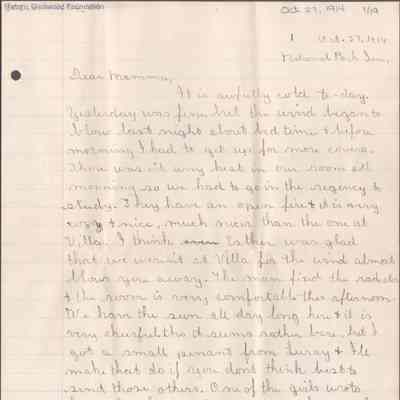 Glenwood Foundation
Oct 27, 1914 1/19
1 Oct. 27, 1914.
National Park Inn,
Dear Mamma,
It is awfully cold to-day.
Yesterday was fine but the wind began to
blow last night about bed time & before
morning I had to get up for more covers.
There wasn't any heat in our room all
morning so we had to go in the regency to
study. They have an open fire & it is very
cozy & nice, much nicer than the one at
Villa. I think even Esther was glad
that we weren't at Villa for the wind almost
blows you away. The man fixed the radiator
& the room is very comfortable this afternoon.
We have the sun all day long here & it is
very cheerful tho it seems rather bare, but I
got a small pennant from Luray & I'll
make that do if you don't think best to
send those others. One of the girls wrote